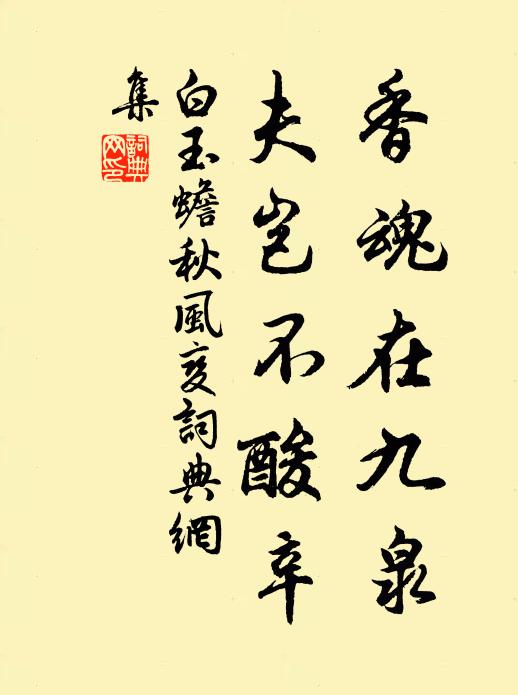 香魂在九泉
夫岂不酸辛
白玉蟾秋風變詞典網
集
詞典
网印